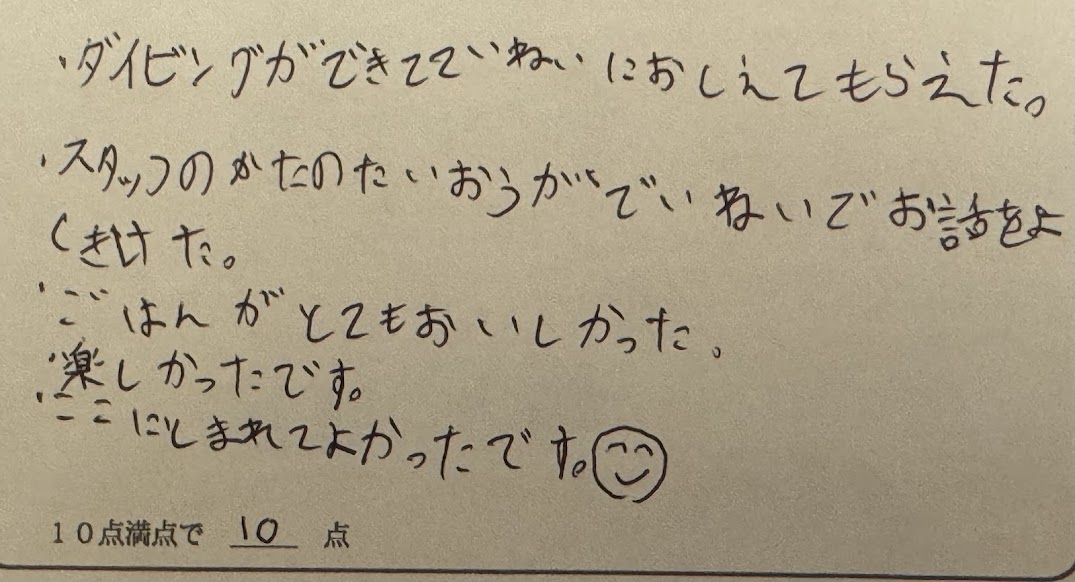 ・ダイビングができてていねいにおしえてもらえた。
・スタッフのかたのたいおうがでいねいでお話をよ
くきけた。
・ごはんがとてもおいしかった。
・楽しかったです。
・ここにしまれてよかったです。
10点満点で 10 点